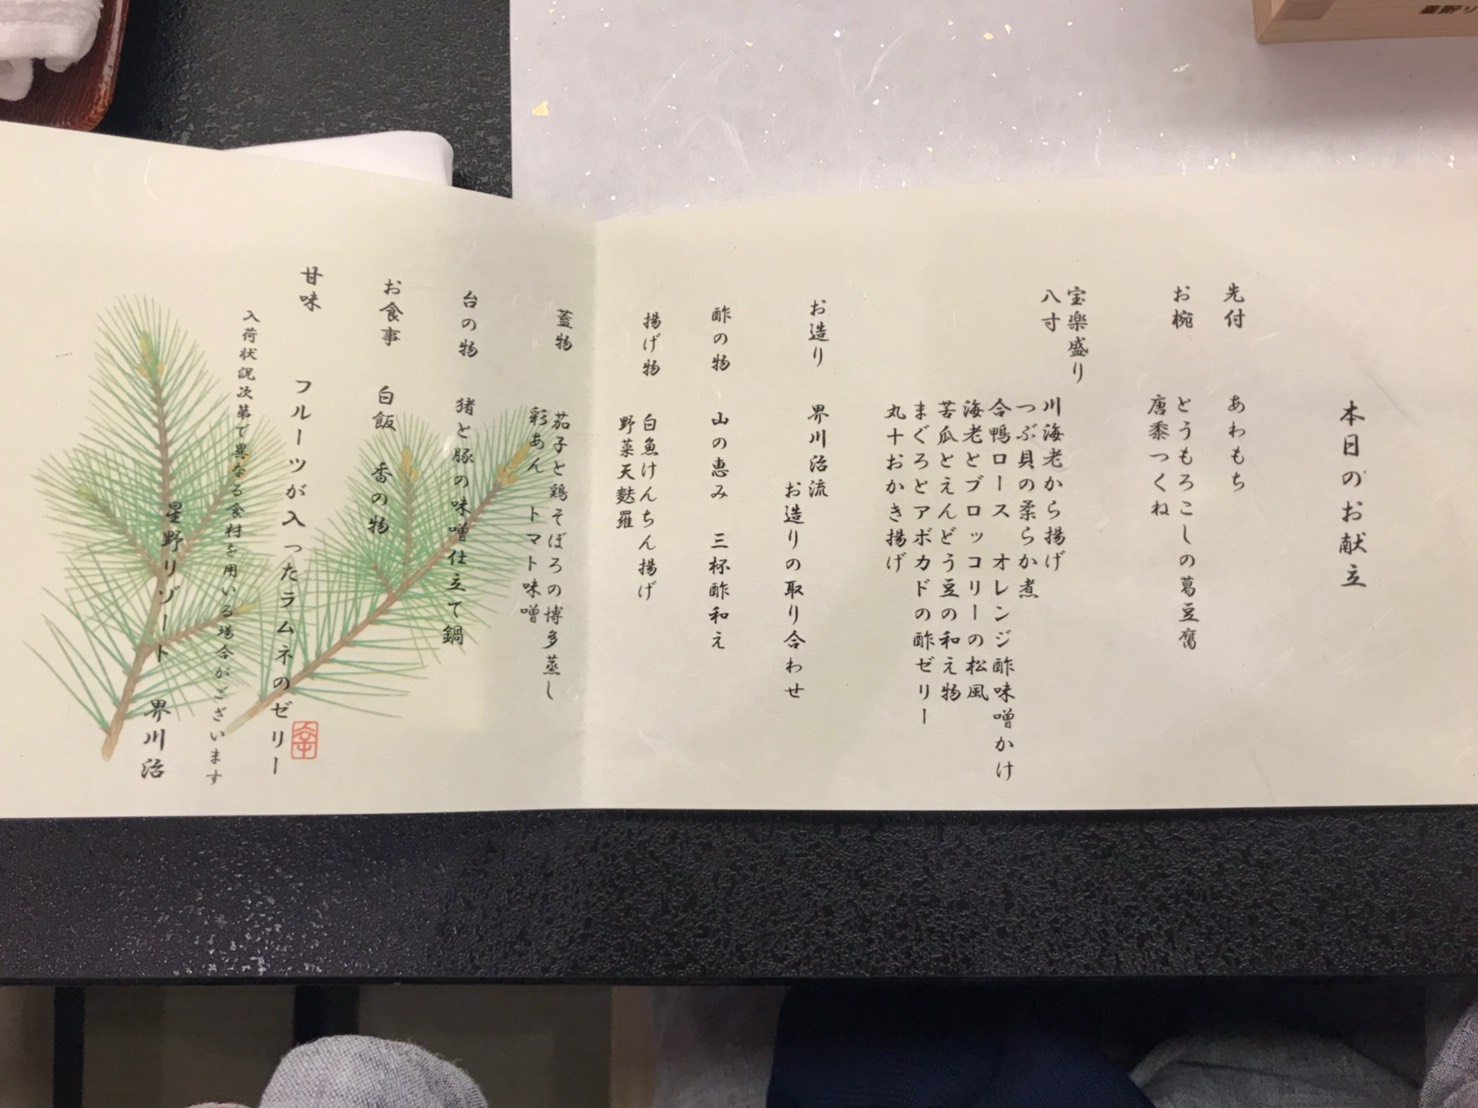 本日のお献立
先付　あわもち
お椀　とうもろこしの葛豆腐
唐黍つくね
宝楽盛り
八寸
川海老から揚げ
つぶ貝の柔らか煮
合鴨ロース　オレンジ酢味噌かけ
海老とブロッコリーの松風
苦瓜とえんどう豆の和え物
まぐろとアボカドの酢ゼリー
丸十おかき揚げ
お造り　界川治流
お造りの取り合わせ
酢の物　山の恵み　三杯酢和え
揚げ物　白魚けんちん揚げ
野菜天麩羅
蓋物　茄子と鶏そぼろの博多蒸し
彩あん　トマト味噌
台の物　猪と豚の味噌仕立て鍋
お食事　白飯　香の物
甘味　フルーツが入ったラムネのゼリー
入荷状況次第で異なる食材を用いる場合がございます
星野リゾート　界川治